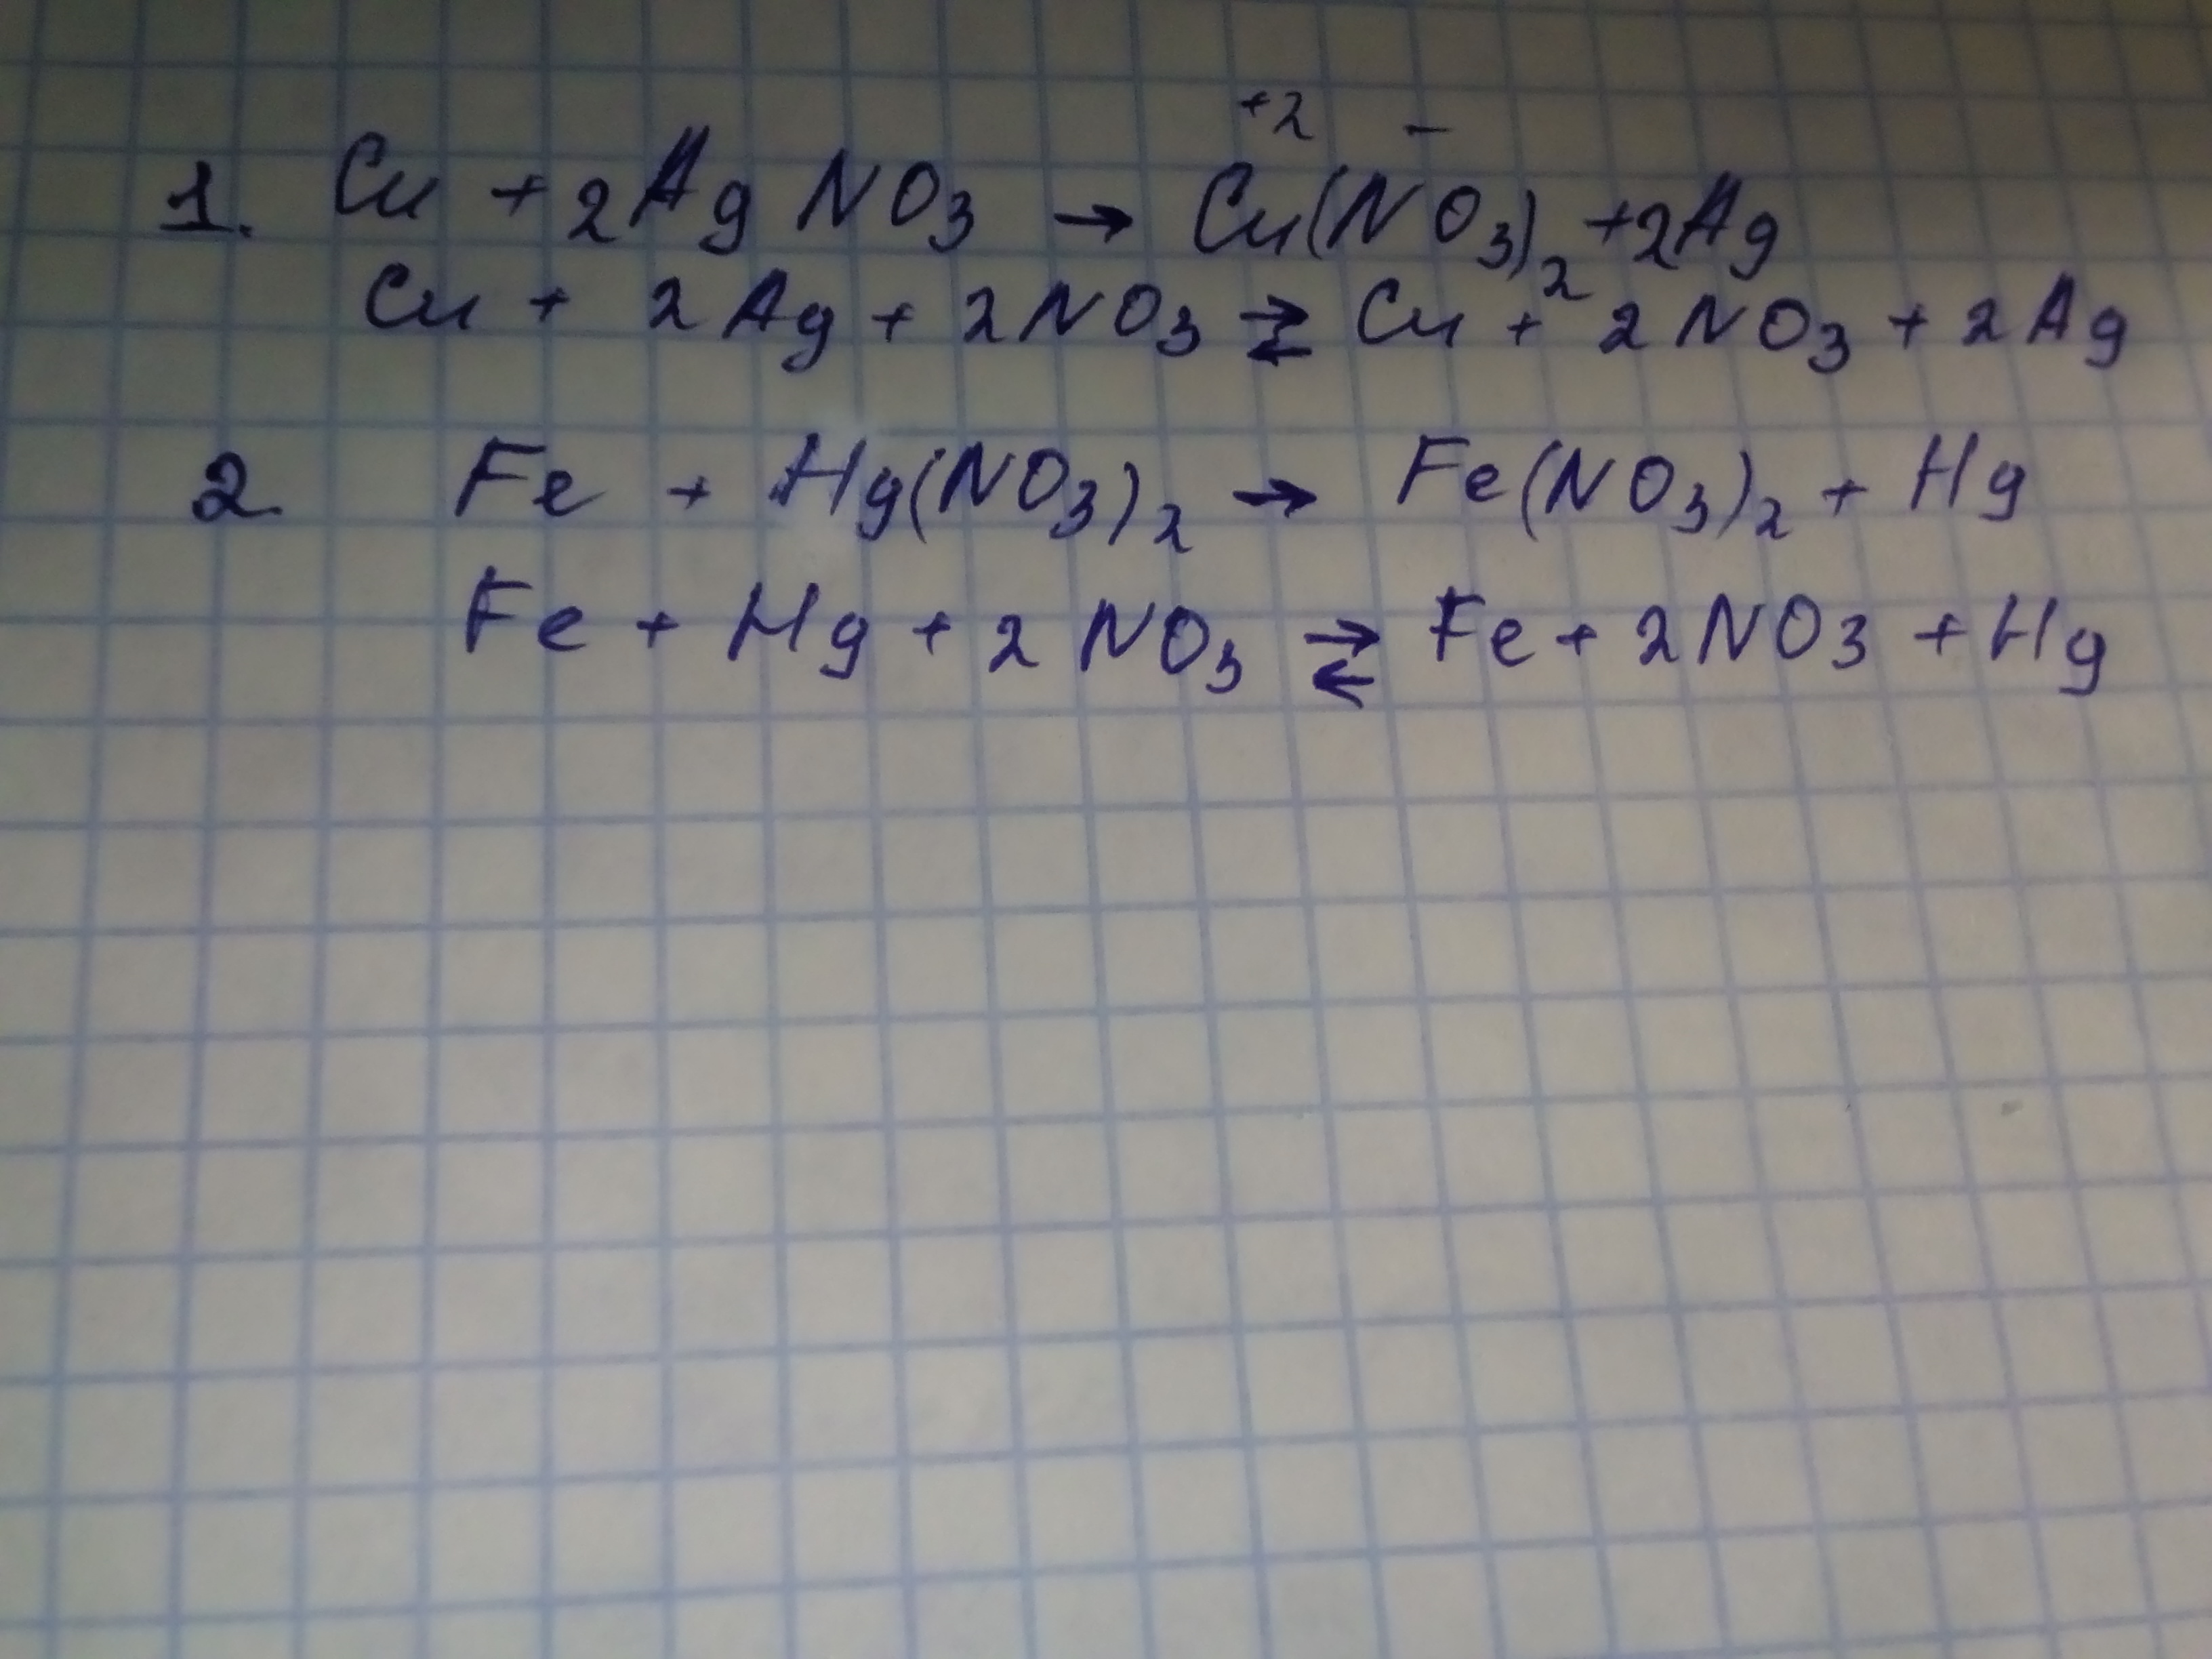 +2 –
1. Cu + 2AgNO₃ → Cu(NO₃)₂ + 2Ag
Cu + 2Ag + 2NO₃ ⇄ Cu + 2NO₃ + 2Ag
2 Fe + Hg(NO₃)₂ → Fe(NO₃)₂ + Hg
Fe + Hg + 2NO₃ ⇄ Fe + 2NO3 + Hg